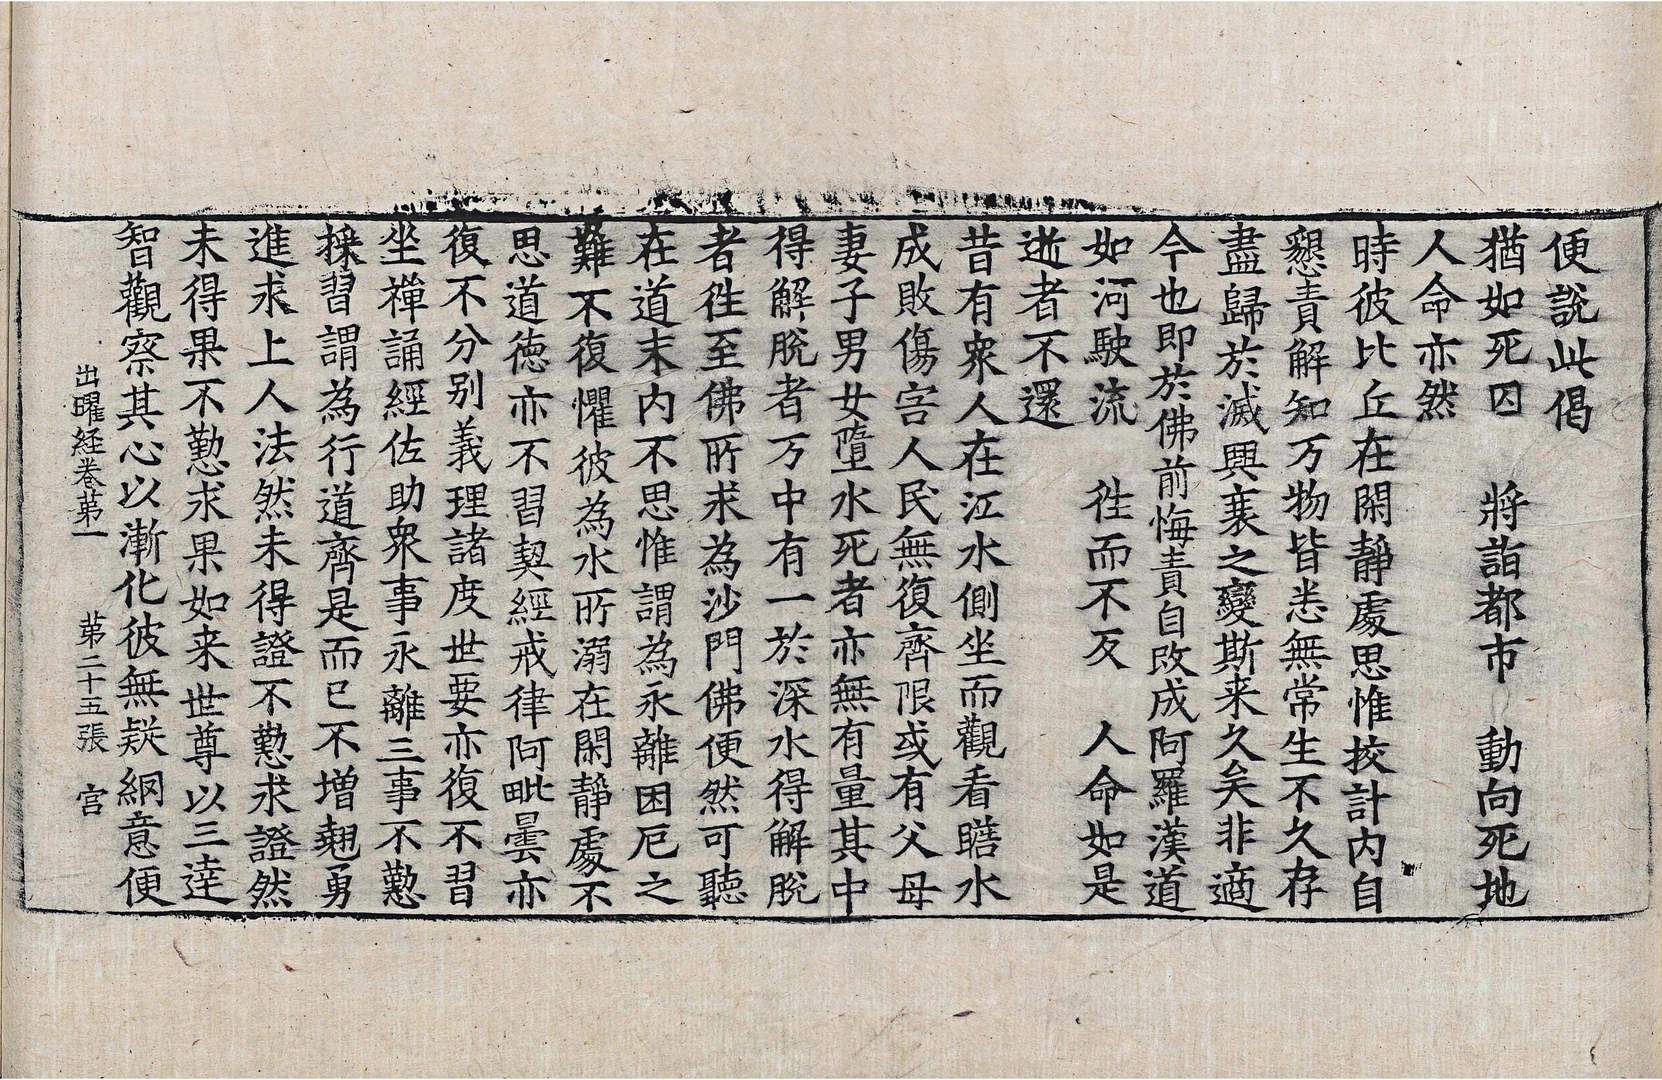 便說此偈
猶如死囚　將詣都市　動向死地
人命亦然
時彼比丘在閑靜處思惟挍計內自
懇責解知万物皆悉無常生不久存
盡歸於滅興衰之變斯来久矣非適
今也即於佛前悔責自改成阿羅漢道
如河駛流　徃而不反　人命如是
逝者不還
昔有衆人在江水側坐而觀看瞻水
成敗傷害人民無復齊限或有父母
妻子男女墮水死者亦無有量其中
得解脫者万中有一於深水得解脫
者徃至佛所求為沙門佛便然可聽
在道末內不思惟謂為永離困厄之
難不復懼彼為水所溺在閑靜處不
思道德亦不習契經戒律阿毗曇亦
復不分別義理諸度世要亦復不習
坐禪誦經佐助衆事永離三事不懃
採習謂為行道齊是而已不增翹勇
進求上人法然未得證不懃求證然
未得果不懃求果如来世尊以三達
智觀察其心以漸化彼無疑網意便
出曜経卷苐一　苐二十五張　宫